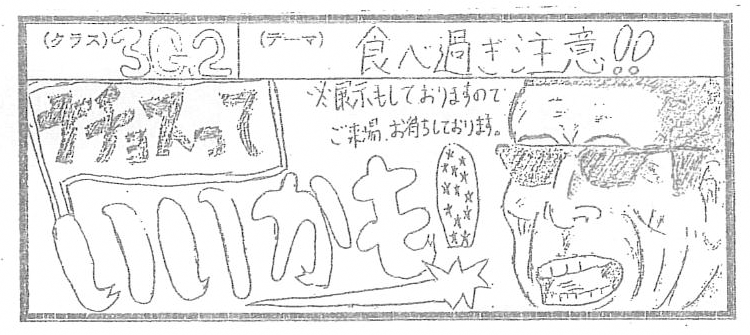 (クラス) 3の2 (テーマ) 食べ過ぎ注意!!
チョスって
いいかも!
※展示もしておりますので
ご来場、お待ちしております。